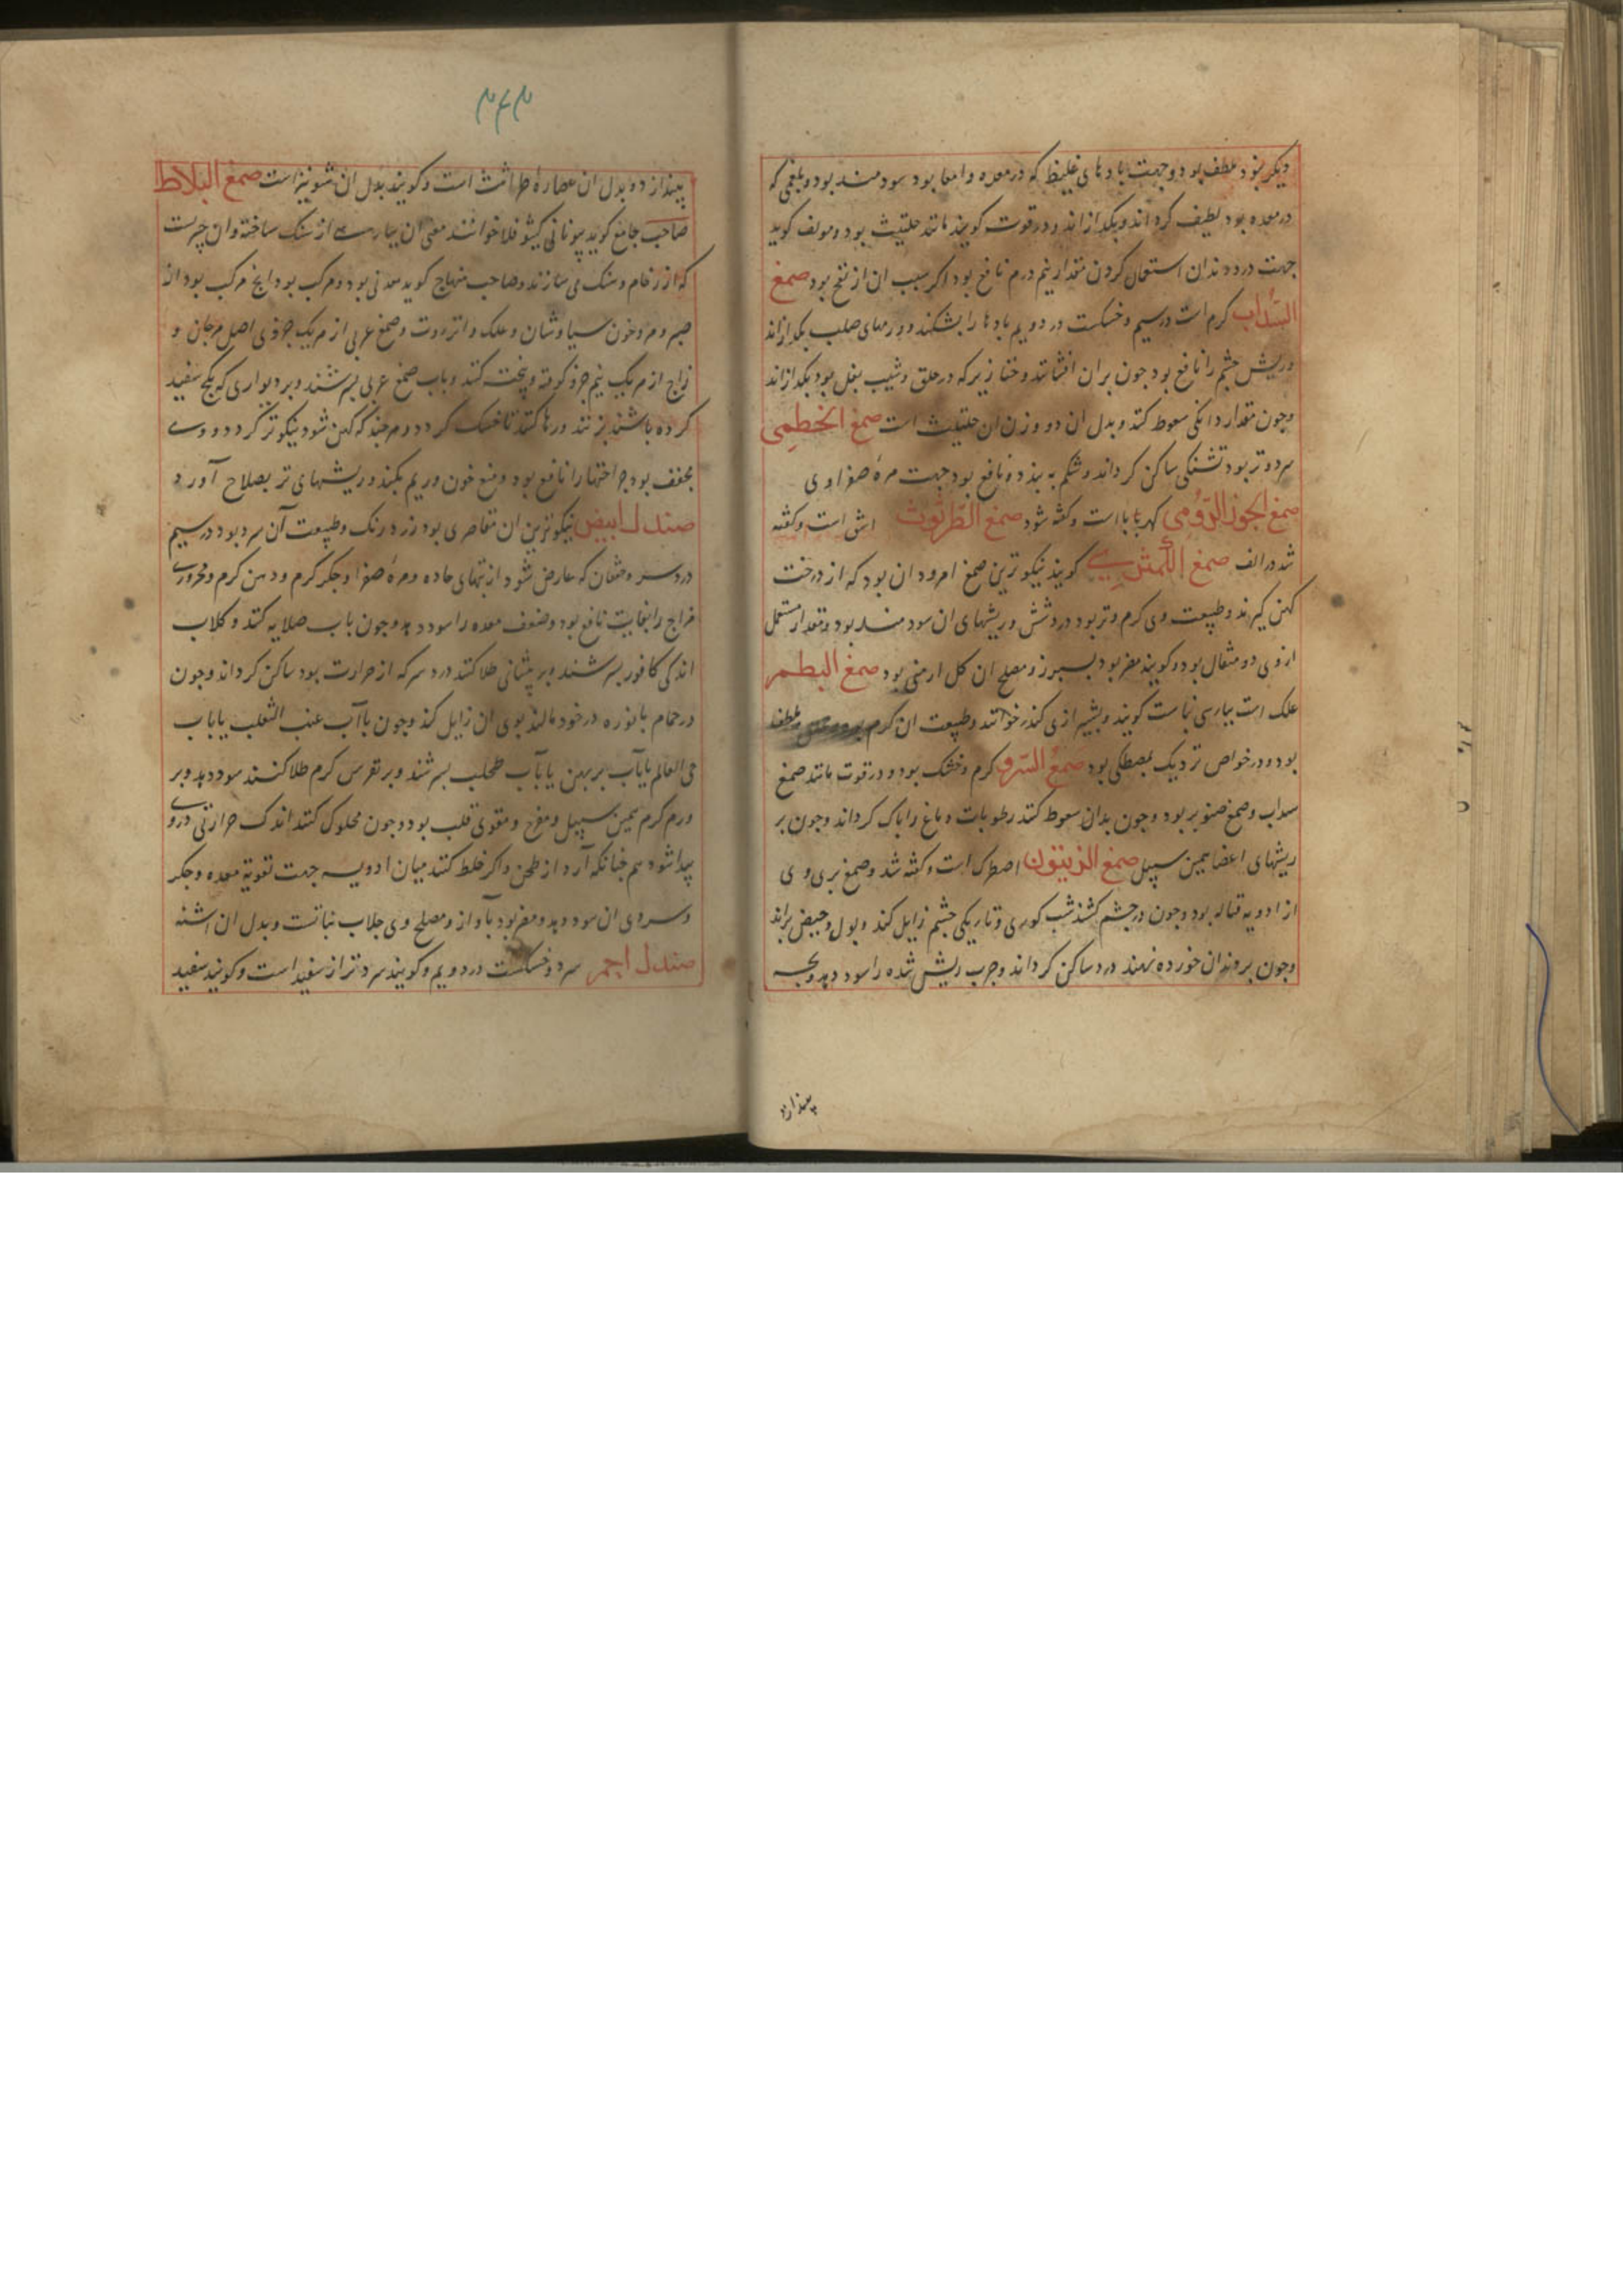 دیگر بود ملطف بود و جهت بادهای غلیظ که در معده و امعا بود سودمند بود و بلغمی که
در معده بود لطیف گرداند و بکدازاند و در قوت گویند مانند حلتیت بود و مولف گوید
جهت درد دندان استعمال کردن مقدار نیم درم نافع بود اگر سبب ان از نفخ بود صمغ
السداب کرم است در سیم و خشکست در دویم بادها را بشکند و ورمهای صلب بکدازاند
و ریش چشم را نافع بود چون بران افشانند و خنازیر که در حلق و شیب بغل بود بکدازاند
و چون مقدار دانکی سعوط کنند و بدل ان دو وزن ان حلتیت است صمغ الخطمی
سرد و تر بود تشنکی ساکن کرداند و شکم ببندد و نافع بود جهت مره صفراوی
صمغ الجوز الرومی کهربا است و گفته شود صمغ الطرثوث اشق است و گفته
شد در الف صمغ الکمثری گویند نیکوترین صمغ امرود ان بود که از درخت
کهن گیرند و طبیعت وی کرم و تر بود در شش و ریشهای ان سودمند بود و مقدار مستعمل
از وی دو مثقال بود و گویند مضر بود بسپرز و مصلح ان کل ارمنی بود صمغ البطم
علک است بپارسی نباست گویند و بشیرازی کندر خوانند و طبیعت ان کرم بود ملطف
بود و در خواص نزدیک بمصطکی بود صمغ السرو کرم و خشک بود و در قوت مانند صمغ
سداب و صمغ صنوبر بود و چون بدان سعوط کنند رطوبات دماغ را پاک کرداند و چون بر
ریشهای اعضا بهمین سبیل صمغ الزیتون اصطرک است و گفته شد و صمغ بری وی
از ادویه قتاله بود و چون در چشم کشند شب کوری و تاریکی چشم زایل کند و بول و حیض براند
و چون بر دندان خورده نهند درد ساکن کرداند و جرب ریش شده را سود دهد و بچه
بیندازد
۳۴۳
بیندازد و بدل ان عصاره طراثیث است و گویند بدل ان شونیز است صمغ البلاط
صاحب جامع گوید بیونانی خوانند معنی ان بپارسی از سنک ساخته و ان چیزیست
که از رخام و سنک می سازند و صاحب منهاج گوید معدنی بود و مرکب بود انچه مرکب بود از
صبر و مر و خون سیاوشان و علک و انزروت و صمغ عربی از هر یک جزوی اصل مرجان و
زاج از هر یک نیم جزو کوفته و بیخته کنند و باب صمغ عربی بسرشند و بر دیواری که بکج سفید
کرده باشند بزنند و رها کنند تا خشک کردد و هر چند که کهن شود نیکوتر کردد و وی
مجفف بود جراحتها را نافع بود و منع خون و ریم بکند و ریشهای تر بصلاح آورد
صندل ابیض نیکوترین ان مقاصری بود زرد رنک و طبیعت آن سرد بود در سیم
درد سر و خفقان که عارض شود از تبهای حاده و مره صفرا و جکر کرم و دهن کرم و محروری
مزاج را بغایت نافع بود و ضعف معده را سود دهد و چون باب صلایه کنند و کلاب
اندکی کافور بسرشند و بر پیشانی طلا کنند درد سر که از حرارت بود ساکن کرداند و چون
در حمام با نوره در خود مالند بوی ان زایل کند و چون با آب عنب الثعلب یا باب
حی العالم یا باب پرپهن یا باب طحلب بسرشند و بر نقرس کرم طلا کنند سود دهد و بر
ورم کرم بهمین سبیل و مفرح و مقوی قلب بود و چون محکوک کنند اندک حرارتی در وی
پیدا شود هم چنانکه آرد از طحن و اکر خلط کنند میان ادویه جهت تقویة معده و جکر
و سردی ان سود دهد و مضر بود بآواز و مصلح وی جلاب نباتست و بدل ان اشنه
صندل احمر سرد و خشکست در دویم و گویند سردتر از سفید است و گویند سفید